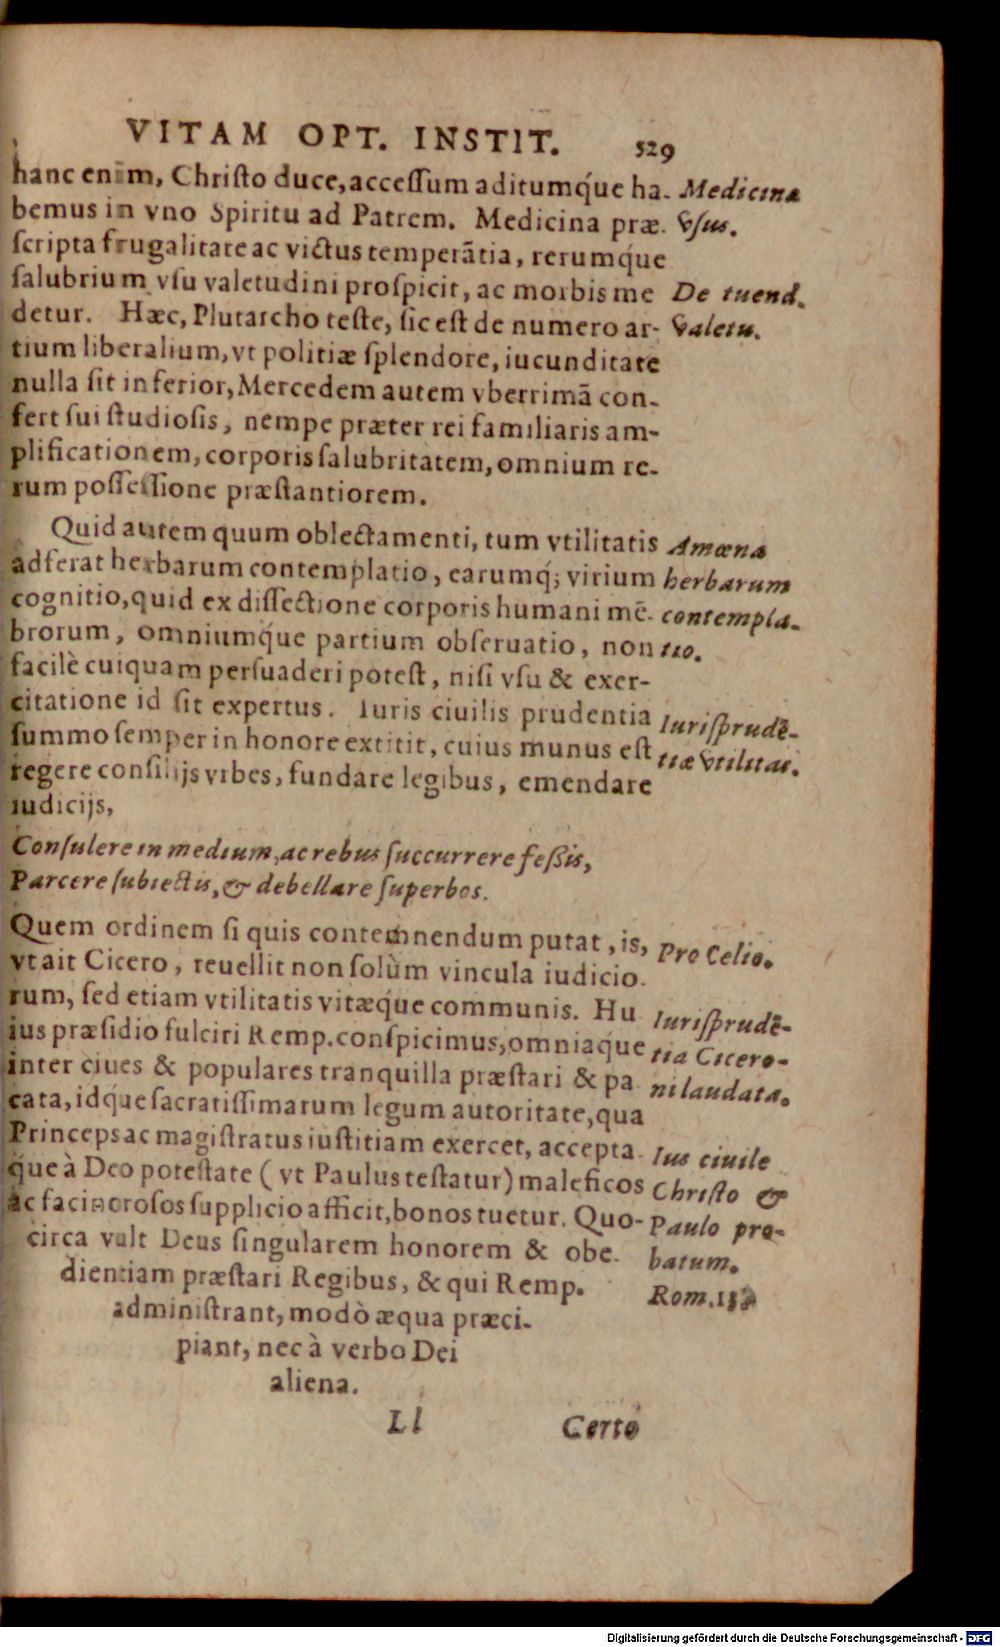 VITAM OPT. INSTIT. 529
hanc enim, Chriſto duce, acceſſum aditumq́ue ha-
bemus in vno Spiritu ad Patrem. Medicina præ-
ſcripta frugalitate ac victus temperātia, rerumq́ue
ſalubrium vſu valetudini proſpicit, ac morbis me
detur. Hæc, Plutarcho teſte, ſic eſt de numero ar-
tium liberalium, vt politiæ ſplendore, iucunditate
nulla ſit inferior, Mercedem autem vberrimā con-
fert ſui ſtudioſis, nempe præter rei familiaris am-
plificationem, corporis ſalubritatem, omnium re-
rum poſſeſſione præſtantiorem.
Medicina
vſus.
De tuend.
valetu.
Quid autem quum oblectamenti, tum vtilitatis
adferat herbarum contemplatio, earumq́; virium
cognitio, quid ex diſſectione corporis humani mē-
brorum, omniumq́ue partium obſeruatio, non
facilè cuiquam perſuaderi poteſt, niſi vſu & exer-
citatione id ſit expertus. Iuris ciuilis prudentia
ſummo ſemper in honore extitit, cuius munus eſt
regere conſilijs vrbes, fundare legibus, emendare
iudicijs,
Amœna
herbarum
contempla-
tio.
Iuriſprudē-
tiæ vtilitas.
Conſulere in medium, ac rebus ſuccurrere feſſis,
Parcere ſubiectis, & debellare ſuperbos.
Quem ordinem ſi quis contemnendum putat, is,
vt ait Cicero, reuellit non ſolùm vincula iudicio-
rum, ſed etiam vtilitatis vitæq́ue communis. Hu
ius præſidio fulciri Remp. conſpicimus, omniaq́ue
inter ciues & populares tranquilla præſtari & pa
cata, idq́ue ſacratiſſimarum legum autoritate, qua
Princeps ac magiſtratus iuſtitiam exercet, accepta-
q́ue à Deo poteſtate ( vt Paulus teſtatur) maleficos
ac facinoroſos ſupplicio afficit, bonos tuetur. Quo-
circa vult Deus ſingularem honorem & obe-
dientiam præſtari Regibus, & qui Remp.
adminiſtrant, modò æqua præci-
piant, nec à verbo Dei
aliena.
Pro Celio.
Iuriſprudē-
tia Cicero-
ni laudata.
Ius ciuile
Chriſto &
Paulo pro-
batum.
Rom. 13.
Ll Certo
Digitalisierung gefördert durch die Deutsche Forschungsgemeinschaft - DFG